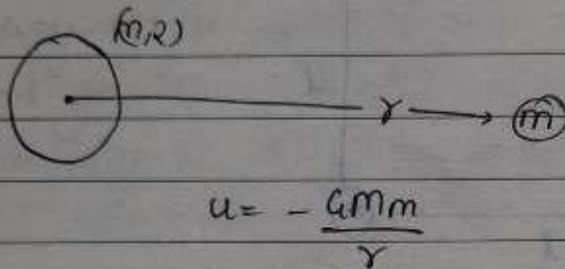 (M, R)
r
m
U = - GMm / r